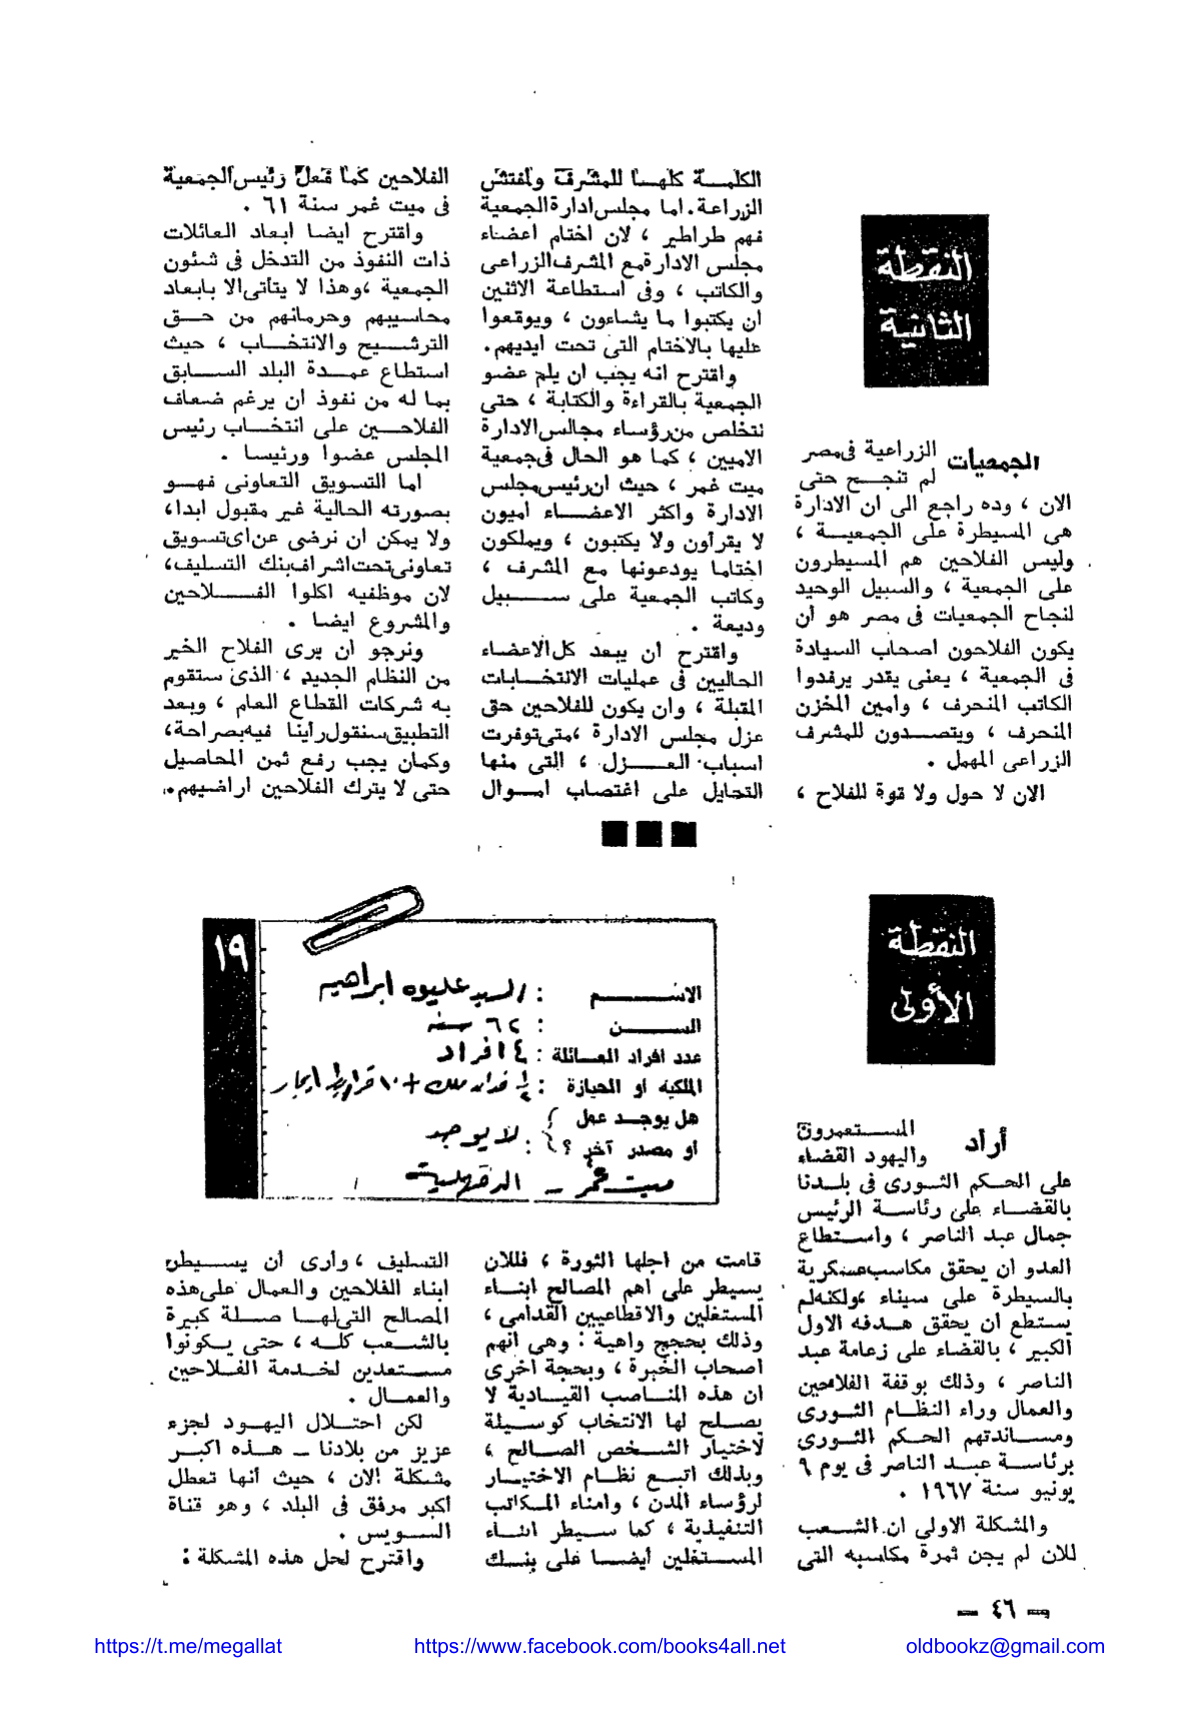 النقطة
الثانية
الجمعيات الزراعية فى مصر
لم تنجــح حتى
الان ، وده راجع الى ان الادارة
هى المسيطرة على الجمعيــة ،
وليس الفلاحين هم المسيطرون
على الجمعية ، والسبيل الوحيد
لنجاح الجمعيات فى مصر هو ان
يكون الفلاحون اصحاب السيادة
فى الجمعية ، يعنى يقدر يرفدوا
الكاتب المنحرف ، وأمين المخزن
المنحرف ، ويتصــدون للمشرف
الزراعى المهمل .
الان لا حول ولا قوة للفلاح ،
الكلمــة كلهــا للمشرف ولمفتش
الزراعة. اما مجلس ادارة الجمعية
فهم طراطير ، لان اختام اعضاء
مجلس الادارة مع المشرف الزراعى
والكاتب ، وفى استطاعة الاثنين
ان يكتبوا ما يشاءون ، ويوقعوا
عليها بالاختام التى تحت ايديهم.
واقترح انه يجب ان يلم عضو
الجمعية بالقراءة والكتابة ، حتى
نتخلص من رؤساء مجالس الادارة
الاميين ، كما هو الحال فى جمعية
ميت غمر ، حيث ان رئيس مجلس
الادارة واكثر الاعضــاء أميون
لا يقرأون ولا يكتبون ، ويملكون
اختاما يودعونها مع المشرف ،
وكاتب الجمعية على ســـبيل
وديعة .
واقترح ان يبعد كل الاعضاء
الحاليين فى عمليات الانتخــابات
المقبلة ، وان يكون للفلاحين حق
عزل مجلس الادارة ،متى توفرت
اسباب العـــزل ، التى منها
التحايل على اغتصاب امـوال
الفلاحين كما فعل رئيس الجمعية
فى ميت غمر سنة ٦١ .
واقترح ايضــا ابعاد العائلات
ذات النفوذ من التدخل فى شئون
الجمعية ،وهذا لا يتأتى الا بابعاد
محاسيبهم وحرمانهم من حــق
الترشــيح والانتخــاب ، حيث
استطاع عمــدة البلد الســابق
بما له من نفوذ ان يرغم ضعاف
الفلاحــين على انتخــاب رئيس
المجلس عضوا ورئيسا .
اما التسويق التعاونى فهــو
بصورته الحالية غير مقبول ابدا،
ولا يمكن ان نرضى عن اى تسويق
تعاونى تحت اشراف بنك التسليف،
لان موظفيه اكلوا الفـــلاحين
والمشروع ايضا .
ونرجو ان يرى الفلاح الخير
من النظام الجديد ، الذى ستقوم
به شركات القطاع العام ، وبعد
التطبيق سنقول رأينا فيه بصراحة،
وكمان يجب رفع ثمن المحاصيل
حتى لا يترك الفلاحين اراضيهم.
١٩
الاســـــم : السيد عليوه ابراهيم
الســــن : ٦٢ سنه
عدد افراد العــائلة : ٤ افراد
الملكيه او الحيازة : ½ فدان ملك + ١٠ قراريط ايجار
هل يوجــد عمل
او مصدر آخر ؟ : لا يوجد
ميت غمر - الدقهلية
النقطة
الأولى
أراد المســتعمرون
واليهود القضاء
على الحكم الثــورى فى بلــدنا
بالقضــاء على رئاســة الرئيس
جمال عبد الناصر ، واســتطاع
العدو ان يحقق مكاسب عسكرية
بالسيطرة على سيناء ،ولكنه لم
يستطع أن يحقق هــدفه الاول
الكبير ، بالقضاء على زعامة عبد
الناصر ، وذلك بوقفة الفلاحين
والعمال وراء النظــام الثــورى
ومســاندتهم الحكم الثــورى
برئاســة عبــد الناصر فى يوم ٩
يونيو سنة ١٩٦٧ .
والمشكلة الاولى ان الشــعب
للان لم يجن ثمرة مكاسبه التى
قامت من اجلها الثورة ، فللان
يسيطر على اهم المصالح ابنــاء
المستغلين والاقطاعيين القدامى ،
وذلك بحجج واهية : وهى انهم
اصحاب الخبرة ، وبحجة اخرى
ان هذه المنــاصب القيــادية لا
يصلــح لها الانتخاب كوســيلة
لاختيار الشــخص الصــالح ،
وبذلك اتبــع نظــام الاختيــار
لرؤساء المدن ، وامناء المــكاتب
التنفيذية ، كما ســيطر ابنــاء
المســتغلين أيضــا على بنــك
التسليف ، وأرى أن يســيطر
ابناء الفلاحين والعمال على هذه
المصالح التى لهــا صــلة كبيرة
بالشــعب كلــه ، حتى يــكونوا
مســتعدين لخــدمة الفــلاحين
والعمــال .
لكن احتــلال اليهــود لجزء
عزيز من بلادنا ــ هــذه اكبــر
مشكلة الان ، حيث أنها تعطل
أكبر مرفق فى البلد ، وهو قناة
الســويس .
واقترح لحل هذه المشكلة :
— ٤٦ —
https://t.me/megallat https://www.facebook.com/books4all.net oldbookz@gmail.com